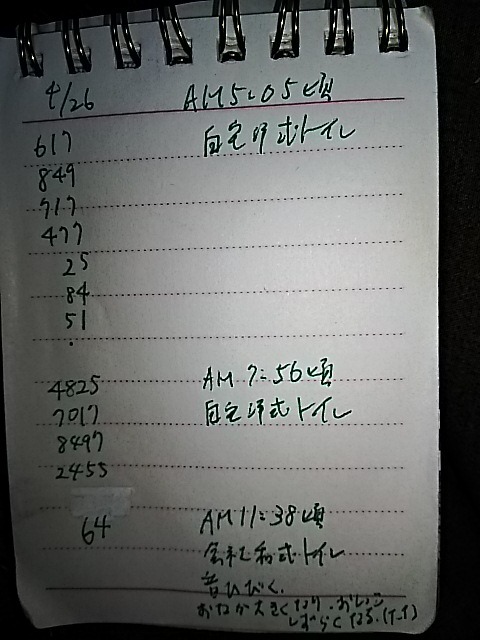 4/26 AM5:05頃
617 自宅洋式トイレ
849
717
477
25
84
51
・
4825 AM7:56頃
7017 自宅洋式トイレ
8497
2455
64 AM11:38頃
会社和式トイレ
音ひびく.
おなか大きくなり、
しばらくなる.(T_T)